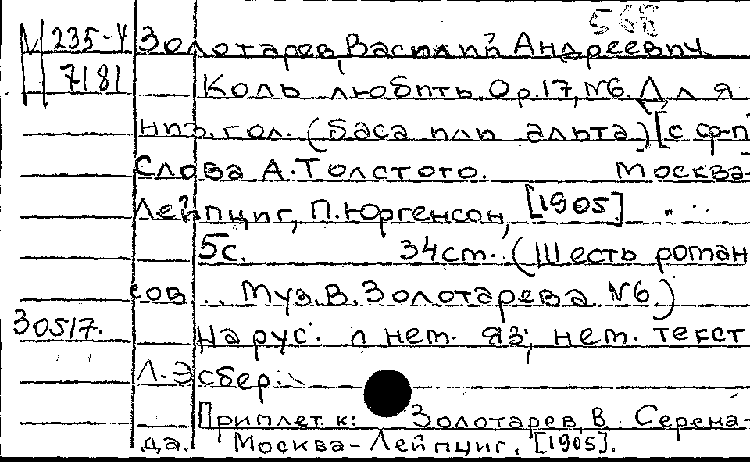 568
М 235-4 Золотарев, Василий Андреевич
7181 Коль любить. Op. 17, №6. Для
низ. гол. (баса или альта) [с ф-п]
Слова А. Толстого. Москва-
Лейпциг, П. Юргенсон, [1905]
5с. 34см. (Шесть роман
сов .. Муз. В. Золотарева №6.)
30517. На рус. и нем. яз; нем. текст
Л. Эсбер.
Приплет. к: Золотарев, В. Серена-
да. Москва-Лейпциг, [1905].